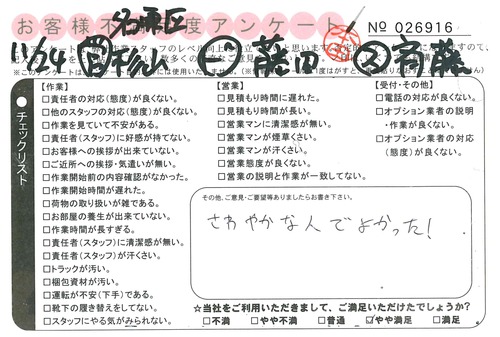 名東区
お客様不満足度アンケート
No 026916
11/24
藤田
斉藤
チェックリスト
【作業】
□責任者の対応(態度)が良くない。
□他のスタッフの対応(態度)が良くない。
□作業を見ていて不安がある。
□責任者(スタッフ)に好感が持てない。
□お客様への挨拶が出来ていない。
□ご近所への挨拶・気遣いが無い。
□作業開始前の内容確認がなかった。
□作業開始時間が遅れた。
□荷物の取り扱いが雑である。
□お部屋の養生が出来ていない。
□作業時間が長すぎる。
□責任者(スタッフ)に清潔感が無い。
□責任者(スタッフ)が汗くさい。
□トラックが汚い。
□梱包資材が汚い。
□運転が不安(下手)である。
□靴下の履き替えをしてない。
□スタッフにやる気がみられない。
【営業】
□見積もり時間に遅れた。
□見積もり時間が長い。
□営業マンに清潔感が無い。
□営業マンが煙草くさい。
□営業マンが汗くさい。
□営業態度が良くない。
□営業の説明と作業が一致してない。
【受付・その他】
□電話の対応が良くない。
□オプション業者の説明
・作業が良くない。
□オプション業者の対応
(態度)が良くない。
その他、ご意見・ご要望等ありましたらお書き下さい。
さわやかな人でよかった!
☆当社をご利用いただきまして、ご満足いただけたでしょうか?
□不満 □やや不満 □普通 ☑やや満足 □満足